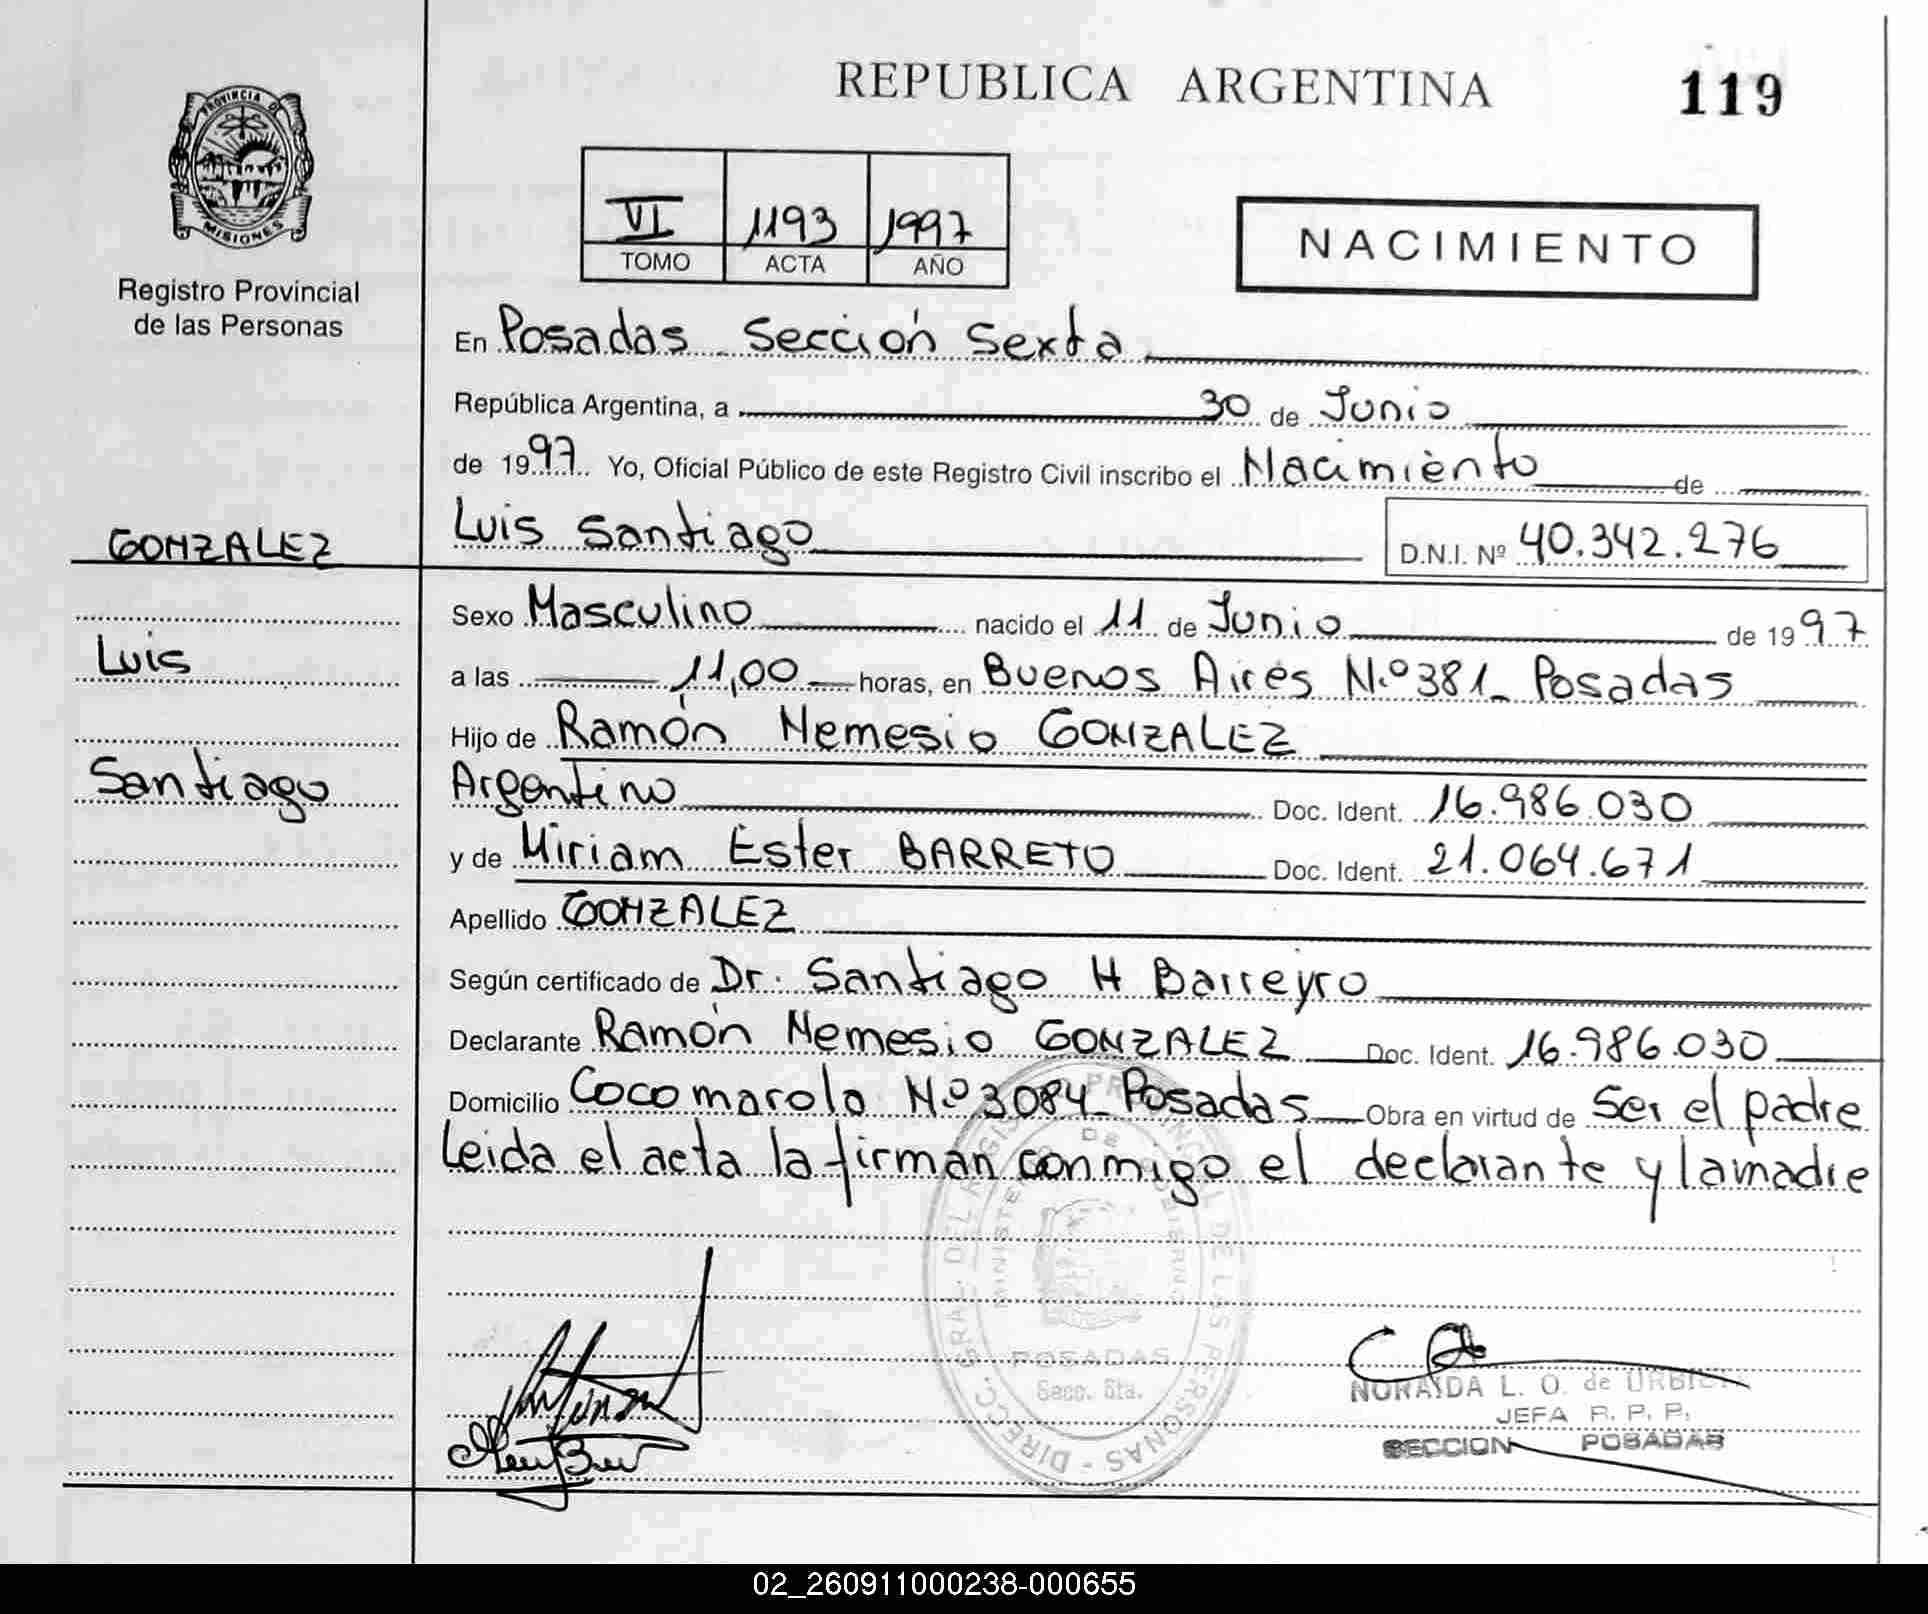 REPUBLICA ARGENTINA
119
PROVINCIA DE
MISIONES
Registro Provincial
de las Personas
VI 1193 1997
TOMO ACTA AÑO
NACIMIENTO
En Posadas Sección Sexta
República Argentina, a 30 de Junio
de 1997. Yo, Oficial Público de este Registro Civil inscribo el Nacimiento de
GONZALEZ Luis Santiago D.N.I. Nº 40.342.276
Sexo Masculino nacido el 11 de Junio de 1997
Luis
a las 11,00 horas, en Buenos Aires N.º 381_ Posadas
Hijo de Ramón Nemesio GONZALEZ
Santiago
Argentino Doc. Ident. 16.986.030
y de Miriam Ester BARRETO Doc. Ident. 21.064.671
Apellido GONZALEZ
Según certificado de Dr. Santiago H Barreyro
Declarante Ramón Nemesio GONZALEZ Doc. Ident. 16.986.030
Domicilio Cocomarola N.º 3084_ Posadas Obra en virtud de Ser el padre
Leida el acta la firman conmigo el declarante y la madre
DIRECC. GRAL. DEL REGISTRO PROVINCIAL DE LAS PERSONAS
MINISTERIO DE GOBIERNO
POSADAS
Secc. 6ta.
NORAIDA L. O. de
JEFA R. P. P.
SECCION POSADAS
02_260911000238-000655